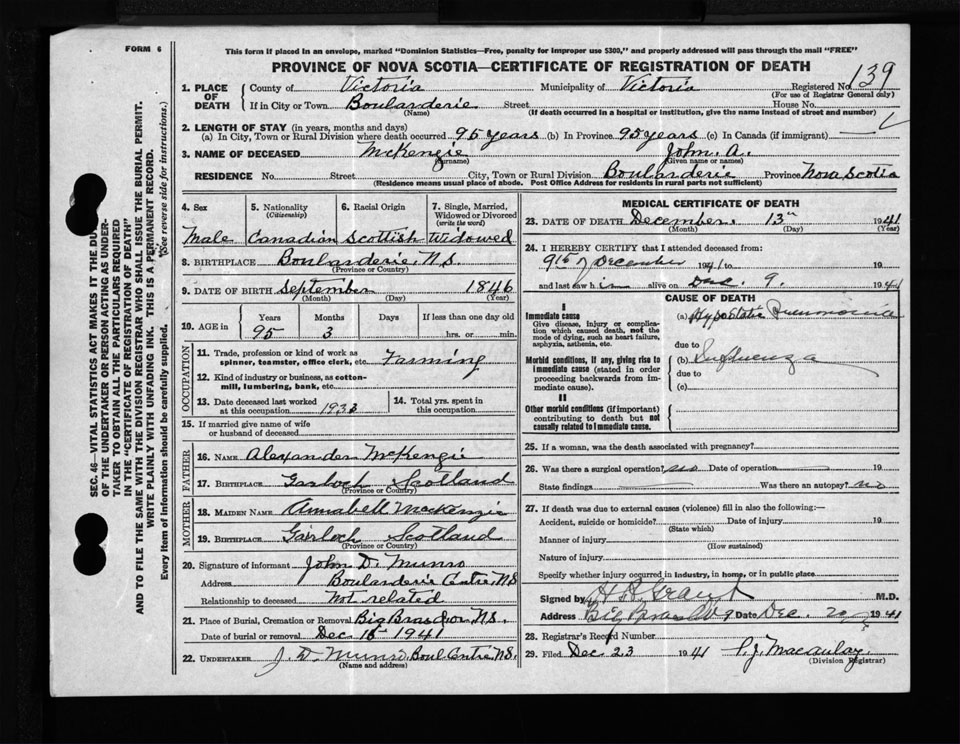 FORM 6
This form if placed in an envelope, marked "Dominion Statistics—Free, penalty for improper use $300," and properly addressed will pass through the mail "FREE"
PROVINCE OF NOVA SCOTIA—CERTIFICATE OF REGISTRATION OF DEATH
1. PLACE OF DEATH
County of Victoria Municipality of Victoria Registered No. 139
(For use of Registrar General only)
If in City or Town Boularderie Street House No.
(Name) (If death occurred in a hospital or institution, give the name instead of street and number)
2. LENGTH OF STAY (in years, months and days)
(a) In City, Town or Rural Division where death occurred 95 years (b) In Province 95 years (c) In Canada (if immigrant)
3. NAME OF DECEASED McKenzie John. A.
(Surname) (Given name or names)
RESIDENCE No. Street City, Town or Rural Division Boularderie Province Nova Scotia
(Residence means usual place of abode. Post Office Address for residents in rural parts not sufficient)
4. Sex Male
5. Nationality (Citizenship) Canadian
6. Racial Origin Scottish
7. Single, Married, Widowed or Divorced (write the word) Widowed
8. BIRTHPLACE Boularderie, N.S.
(Province or Country)
9. DATE OF BIRTH September 1846
(Month) (Day) (Year)
10. AGE in Years Months Days If less than one day old
95 3 hrs. or min.
OCCUPATION
11. Trade, profession or kind of work as spinner, teamster, office clerk, etc. Farming
12. Kind of industry or business, as cotton-mill, lumbering, bank, etc.
13. Date deceased last worked at this occupation 1933
14. Total yrs. spent in this occupation
15. If married give name of wife or husband of deceased
FATHER
16. NAME Alexander McKenzie
17. BIRTHPLACE Gairloch Scotland
(Province or Country)
MOTHER
18. MAIDEN NAME Annabell McKenzie
19. BIRTHPLACE Gairloch Scotland
(Province or Country)
20. Signature of informant John D. Munro
Address Boularderie Centre, N.S.
Relationship to deceased Not related
21. Place of Burial, Cremation or Removal Big Bras d'or N.S.
Date of burial or removal Dec 16 1941
22. UNDERTAKER J. D. Munro, Boul Centre, N.S.
(Name and address)
MEDICAL CERTIFICATE OF DEATH
23. DATE OF DEATH December. 13th 1941
(Month) (Day) (Year)
24. I HEREBY CERTIFY that I attended deceased from:
9th of December 1941 to 19
and last saw him alive on Dec. 9. 1941
CAUSE OF DEATH
I
Immediate cause
Give disease, injury or complication which caused death, not the mode of dying, such as heart failure, asphyxia, asthenia, etc.
(a) Hypostatic Pneumonia
due to
Morbid conditions, if any, giving rise to immediate cause (stated in order proceeding backwards from immediate cause).
(b) Influenza
due to
(c)
II
Other morbid conditions (if important) contributing to death but not causally related to immediate cause.
25. If a woman, was the death associated with pregnancy?
26. Was there a surgical operation? no Date of operation 19
State findings Was there an autopsy? no
27. If death was due to external causes (violence) fill in also the following:—
Accident, suicide or homicide? Date of injury 19
(State which)
Manner of injury
(How sustained)
Nature of injury
Specify whether injury occurred in industry, in home, or in public place
Signed by H R Grant M.D.
Address Date Dec. 1941
28. Registrar's Record Number
29. Filed Dec 23 1941 P. J. Macaulay.
(Division Registrar)
SEC. 46—VITAL STATISTICS ACT MAKES IT THE DUTY OF THE UNDERTAKER OR PERSON ACTING AS UNDERTAKER TO OBTAIN ALL THE PARTICULARS REQUIRED IN THE "CERTIFICATE OF REGISTRATION OF DEATH"
AND TO FILE THE SAME WITH THE DIVISION REGISTRAR WHO SHALL ISSUE THE BURIAL PERMIT.
WRITE PLAINLY WITH UNFADING INK. THIS IS A PERMANENT RECORD.
Every item of information should be carefully supplied. (See reverse side for instructions.)